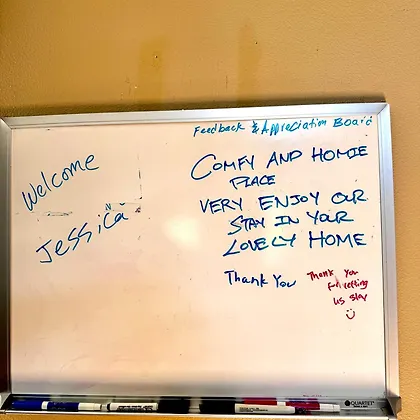 Feedback & Appreciation Board
Welcome
Jessica
COMFY AND HOMIE
PLACE
VERY ENJOY OUR
STAY IN YOUR
LOVELY HOME
Thank You
Thank You
for letting
us stay
QUARTET